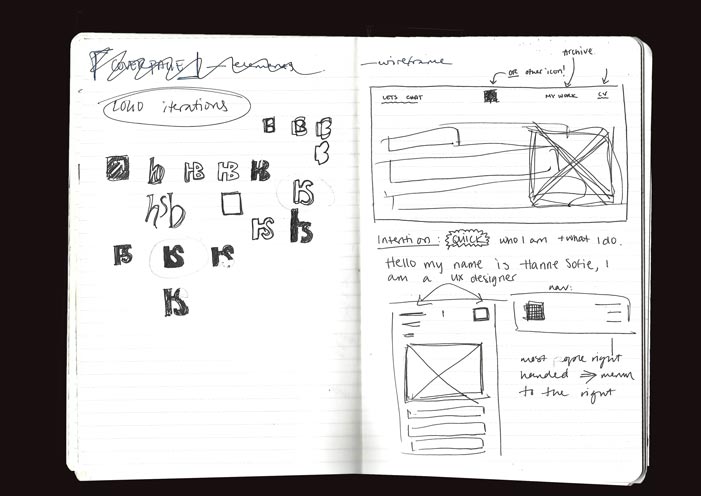 COVERPAGE
LOGO iterations
B B B
B
hb HB HB HB
hsb
HS
HS
HS
HS HS HS
HS
wireframe
Archive
OR other icon!
LETS CHAT
MY WORK
CV
Intention: QUICK who I am + what I do.
Hello my name is Hanne Sofie, I
am a UX designer
nav:
most people right
handed => menu
to the right